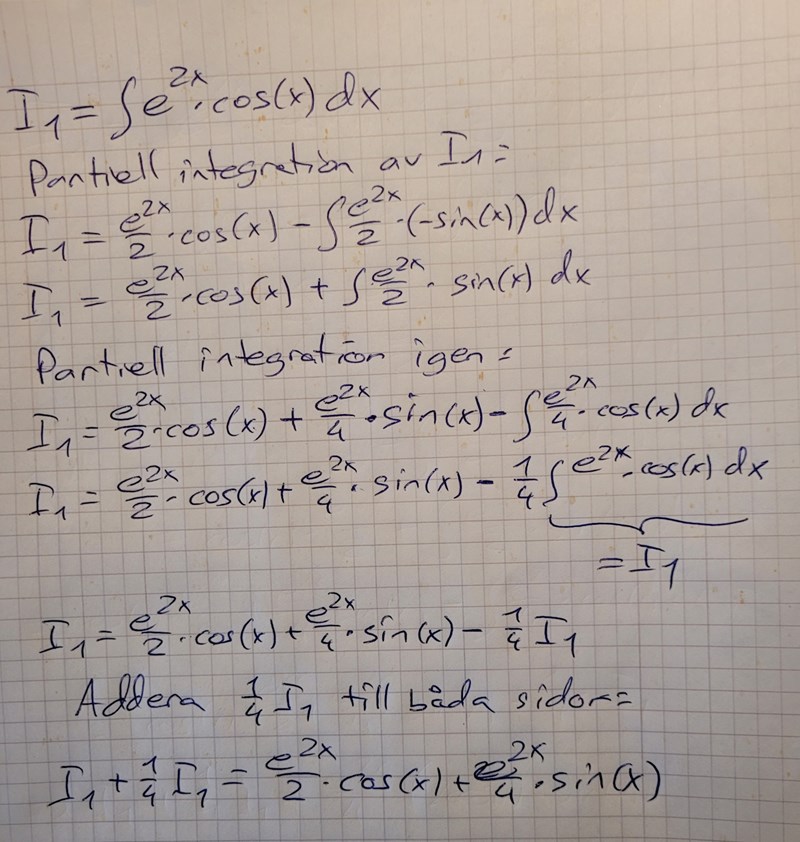 I₁ = ∫e^{2x}·cos(x) dx
Partiell integration av I₁:
I₁ = e^{2x}/2 ·cos(x) − ∫e^{2x}/2 ·(−sin(x)) dx
I₁ = e^{2x}/2 ·cos(x) + ∫e^{2x}/2 · sin(x) dx
Partiell integration igen:
I₁ = e^{2x}/2 ·cos(x) + e^{2x}/4 ·sin(x) − ∫e^{2x}/4 ·cos(x) dx
I₁ = e^{2x}/2 · cos(x) + e^{2x}/4 · sin(x) − 1/4 ∫e^{2x}·cos(x) dx
= I₁
I₁ = e^{2x}/2 ·cos(x) + e^{2x}/4 ·sin(x) − 1/4 I₁
Addera 1/4 I₁ till båda sidor:
I₁ + 1/4 I₁ = e^{2x}/2 ·cos(x) + e^{2x}/4 ·sin(x)